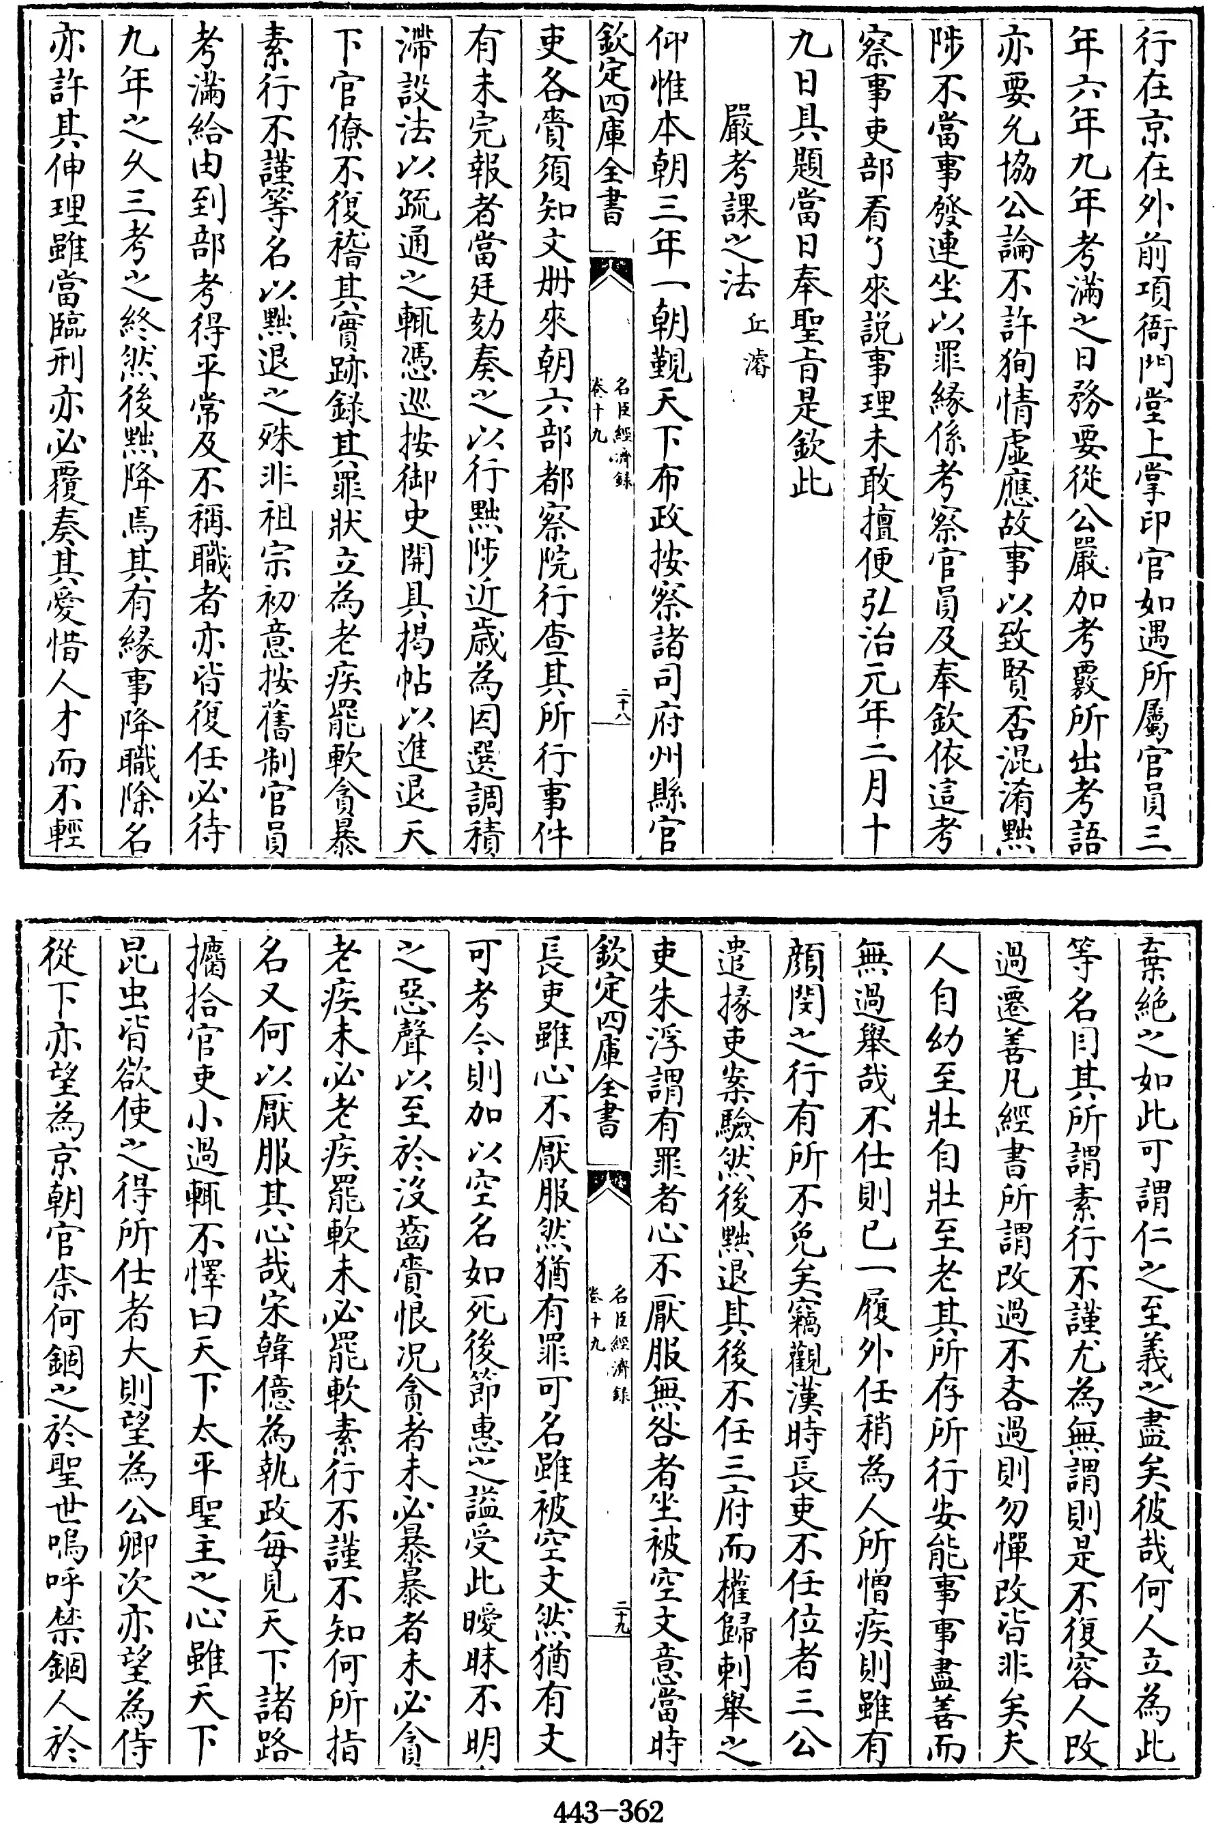 行在京在外前項衙門堂上掌印官如遇所屬官員三
年六年九年考滿之日務要從公嚴加考覈所出考語
亦要允協公論不許狥情虛應故事以致賢否混淆黜
陟不當事發連坐以罪縁係考察官員及奉欽依這考
察事吏部看了來說事理未敢擅便弘治元年二月十
九日具題當日奉聖旨是欽此
嚴考課之法 丘濬
仰惟本朝三年一朝覲天下布政按察諸司府州縣官
欽定四庫全書 名臣經濟錄 卷十九 二十八
吏各賫須知文册來朝六部都察院行查其所行事件
有未完報者當廷劾奏之以行黜陟近歲為因選調積
滯設法以疏通之輒憑巡按御史開具揭帖以進退天
下官僚不復稽其實跡錄其罪狀立為老疾罷軟貪暴
素行不謹等名以黜退之殊非祖宗初意按舊制官員
考滿給由到部考得平常及不稱職者亦皆復任必待
九年之久三考之終然後黜降焉其有緣事降職除名
亦許其伸理雖當臨刑亦必覆奏其愛惜人才而不輕
棄絶之如此可謂仁之至義之盡矣彼哉何人立為此
等名目其所謂素行不謹尤為無謂則是不復容人改
過遷善凡經書所謂改過不吝過則勿憚改皆非矣夫
人自幼至壯自壯至老其所存所行安能事事盡善而
無過舉哉不仕則已一履外任稍為人所憎疾則雖有
顔閔之行有所不免矣竊觀漢時長吏不任位者三公
遣掾吏案驗然後黜退其後不任三府而權歸刺舉之
吏朱浮謂有罪者心不厭服無咎者坐被空文意當時
欽定四庫全書 名臣經濟錄 卷十九 二十九
長吏雖心不厭服然猶有罪可名雖被空文然猶有文
可考今則加以空名如死後節惠之謚受此曖昧不明
之惡聲以至於沒齒賫恨况貪者未必暴暴者未必貪
老疾未必老疾罷軟未必罷軟素行不謹不知何所指
名又何以厭服其心哉宋韓億為執政每見天下諸路
攟拾官吏小過輒不懌曰天下太平聖主之心雖天下
昆虫皆欲使之得所仕者大則望為公卿次亦望為侍
從下亦望為京朝官柰何錮之於聖世嗚呼禁錮人於
443-362